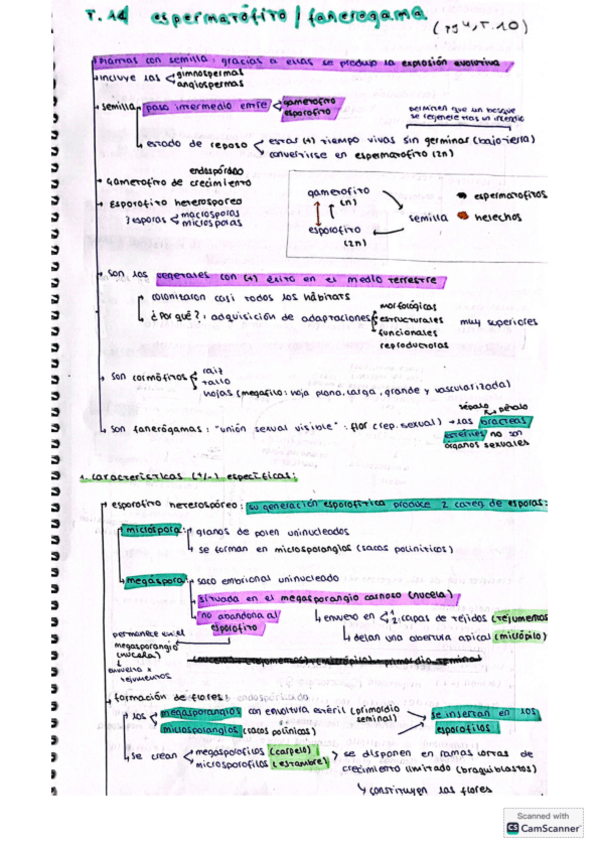 T. 14 espermatófito / fanerógama. (pg 4, T.10)
Plantas con semilla: gracias a ellas se produjo la explosión evolutiva
incluye las gimnospermas
angiospermas
semilla paso intermedio entre gametofito
esporofito
permiten que un bosque
se regenere tras un incendio
estado de reposo estar (+) tiempo vivas sin germinar (bajo tierra)
convertirse en espermatofito (2n)
endospórico
Gametofito de crecimiento
Esporofito heterospóreo
esporas macrosporas
microsporas
gametofito
(n)
semilla
esporofito
(2n)
espermatofitos
helechos
son los vegetales con (+) éxito en el medio terrestre
colonizaron casi todos los hábitats
¿Por qué?: adquisición de adaptaciones morfológicas
estructurales
funcionales
reproductoras
muy superiores
son cormófitos raíz
tallo
hojas (megafilo: hoja plana, larga, grande y vascularizada)
sépalo pétalo
son fanerógamas: "unión sexual visible": flor (rep. sexual) → las brácteas
estériles no son
órganos sexuales
1. características (+/-) específicas:
esporofito heterospóreo: su generación esporofítica produce 2 categ de esporas:
microspora: granos de polen uninucleados
se forman en microsporangios (sacos polínicos)
megaspora: saco embrional uninucleado
situada en el megasporangio carnoso (nucela)
no abandona al
esporofito
envuelto en 1-2 capas de tejidos (tegumentos)
dejan una abertura apical (micrópilo)
permanece en el
megasporangio
(nucela)
envuelta x
tegumentos
formación de flores:
los megasporangios con envoltura estéril (primordio
seminal)
microsporangios (sacos polínicos)
se insertan en los
esporofilos
se crean megasporofilos (carpelo)
microsporofilos (estambre)
se disponen en ramas cortas de
crecimiento limitado (braquiblastos)
constituyen las flores
Scanned with
CS CamScanner